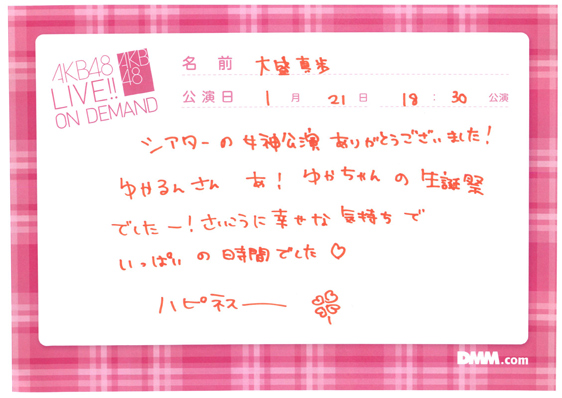 AKB48
LIVE!!
ON DEMAND
AKB
48
名前 大盛真歩
公演日 1月 21日 18:30 公演
シアターの女神公演 ありがとうございました!
ゆかるんさん あ! ゆかちゃんの生誕祭
でした〜! さいこうに幸せな気持ちで
いっぱいの時間でした♡
ハピネスーー
DMM.com